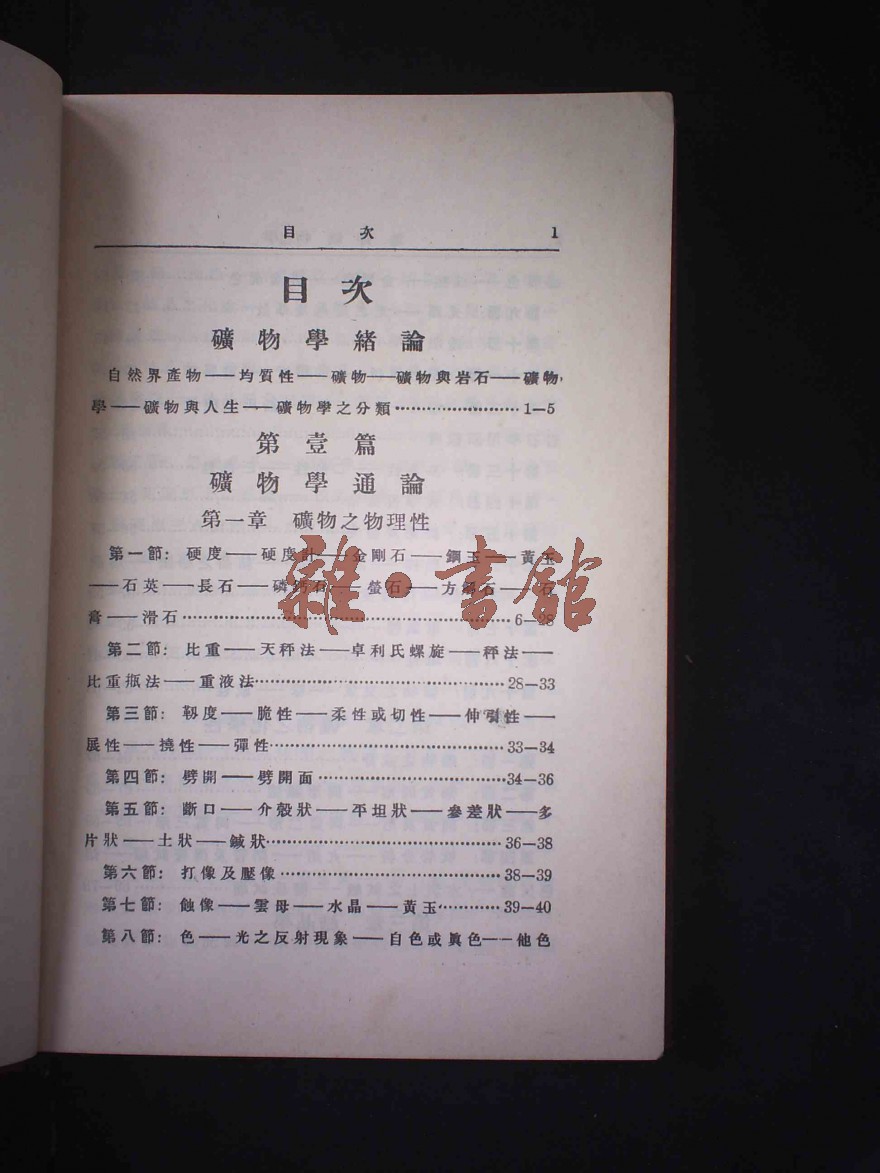 目 次 1
目次
礦物學緒論
自然界產物——均質性——礦物——礦物與岩石——礦物
學——礦物與人生——礦物學之分類……………………1—5
第壹篇
礦物學通論
第一章 礦物之物理性
第一節：硬度——硬度計——金剛石——鋼玉——黃玉
——石英——長石——磷鈣石——螢石——方解石——石
膏——滑石……………………6—28
第二節：比重——天秤法——卓利氏螺旋——秤法——
比重瓶法——重液法……………………28—33
第三節：靱度——脆性——柔性或切性——伸引性——
展性——撓性——彈性……………………33—34
第四節：劈開——劈開面……………………34—36
第五節：斷口——介殼狀——平坦狀——參差狀——多
片狀——土狀——鍼狀……………………36—38
第六節：打像及壓像……………………38—39
第七節：蝕像——雲母——水晶——黃玉…………39—40
第八節：色——光之反射現象——自色或眞色——他色
雜·書館